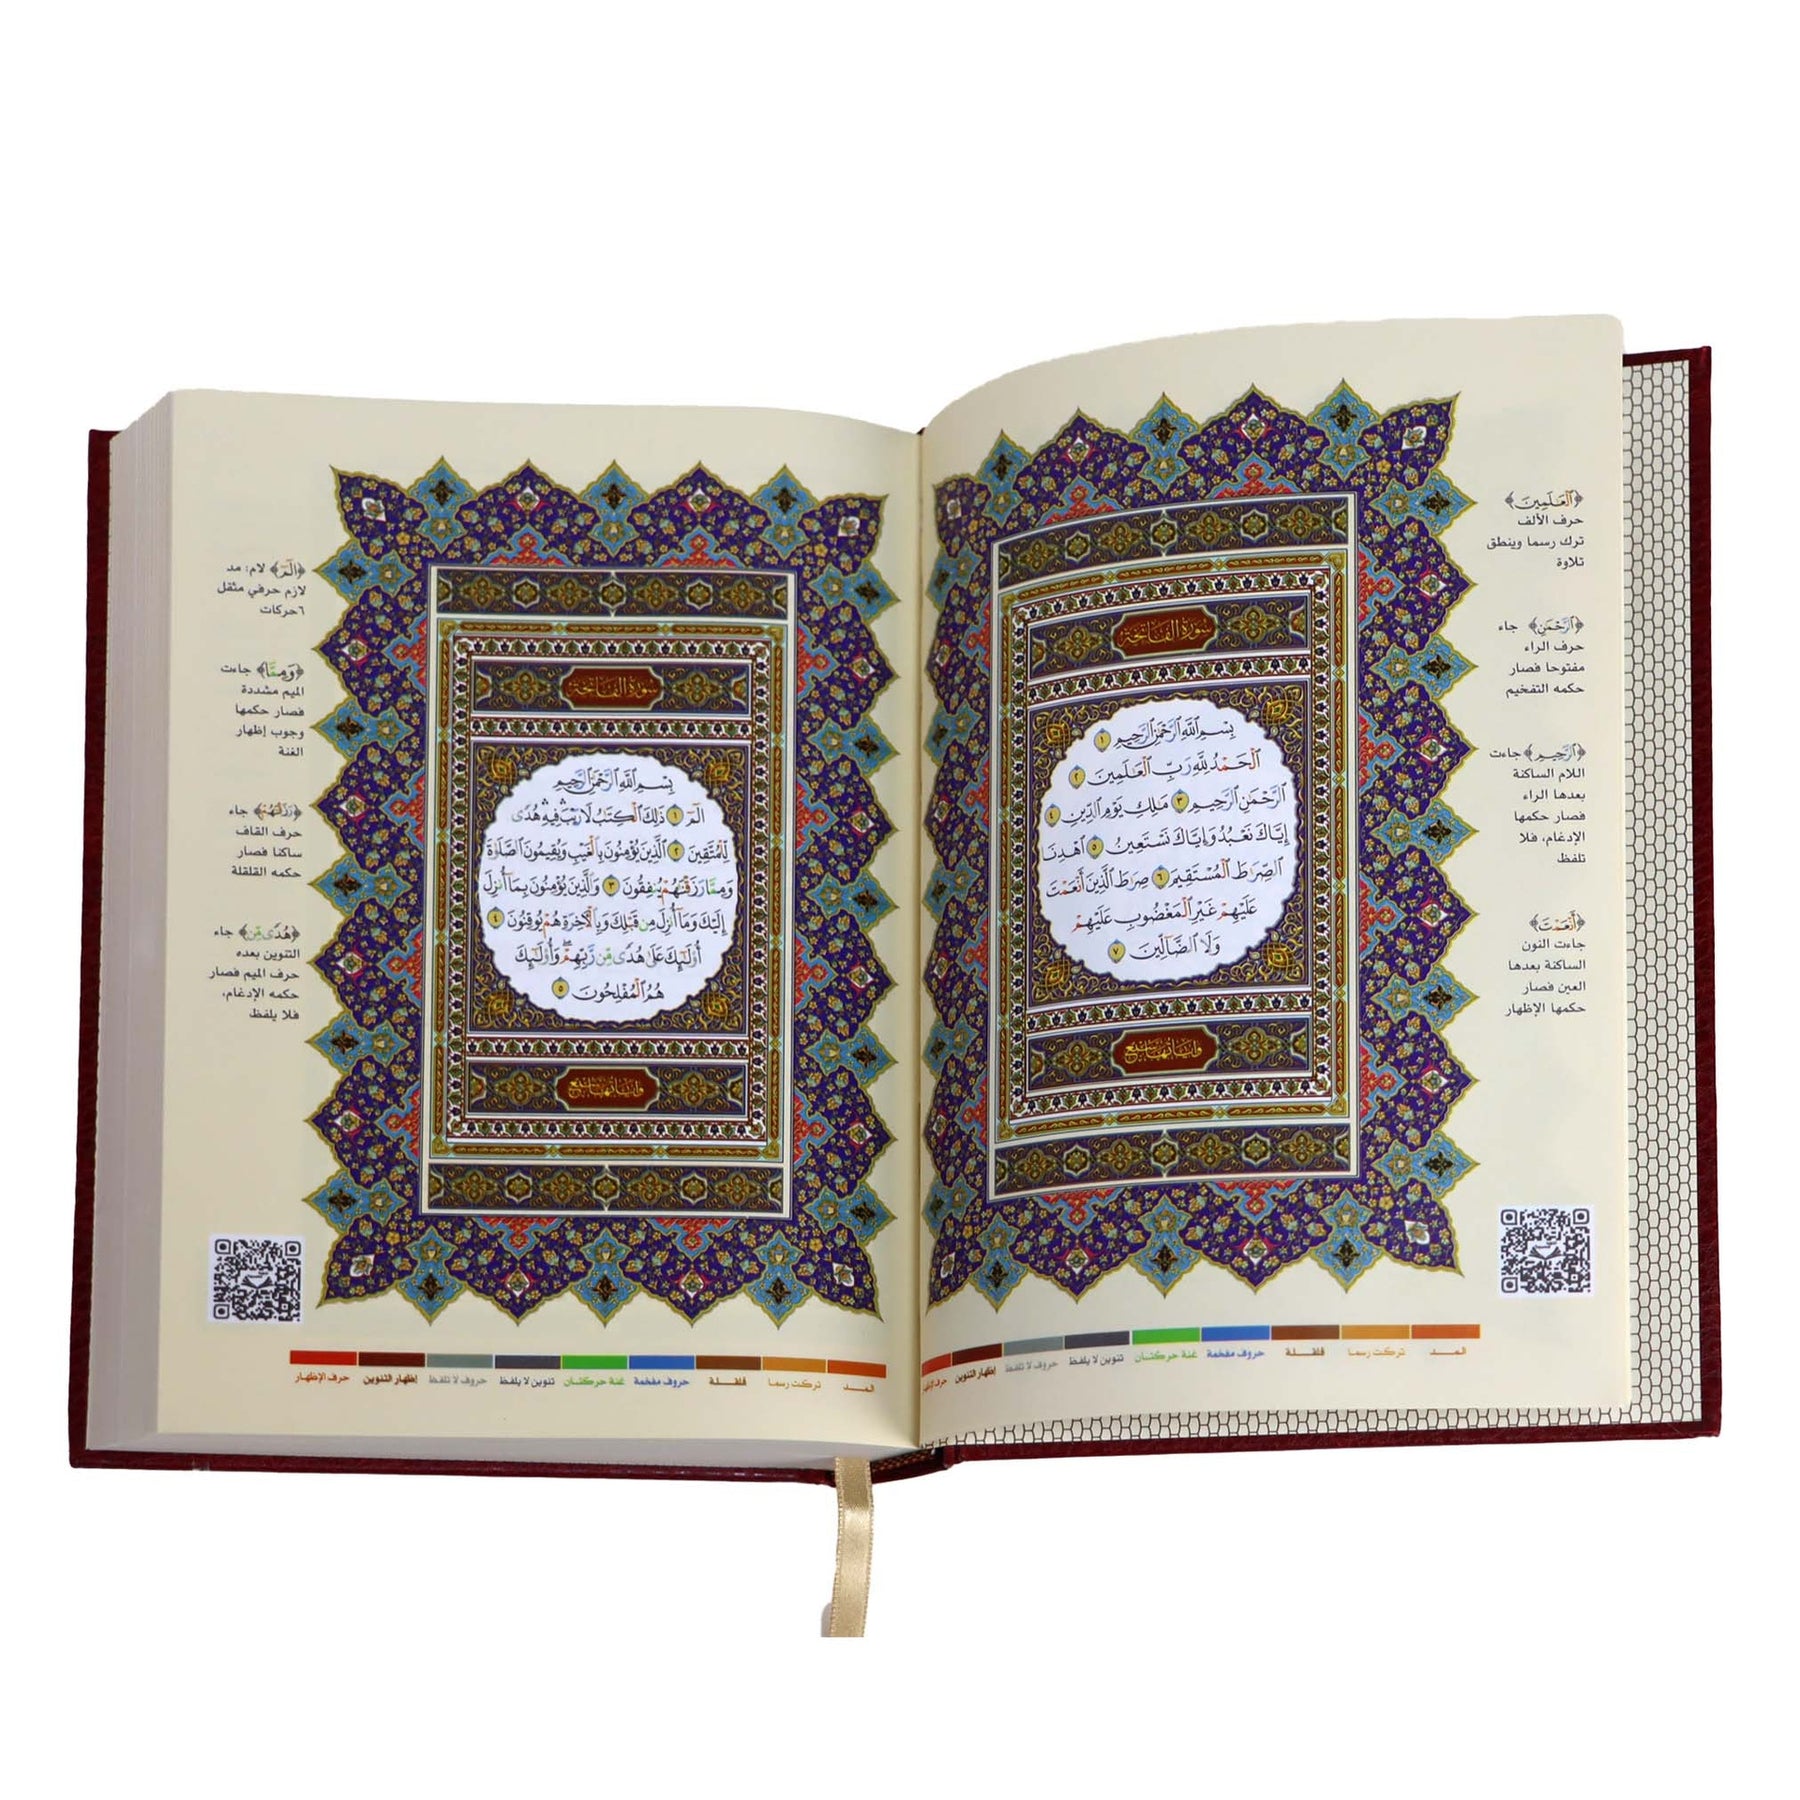 ﴿ٱلۡعَـٰلَمِينَ﴾
حرف الألف
ترك رسما وينطق
تلاوة
﴿ٱلرَّحۡمَـٰنِ﴾ جاء
حرف الراء
مفتوحا فصار
حكمه التفخيم
﴿ٱلرَّحِيمِ﴾ جاءت
اللام الساكنة
بعدها الراء
فصار حكمها
الإدغام، فلا
تلفظ
﴿أَنۡعَمۡتَ﴾
جاءت النون
الساكنة بعدها
العين فصار
حكمها الإظهار
سورة الفاتحة
بِسۡمِ ٱللَّهِ ٱلرَّحۡمَـٰنِ ٱلرَّحِيمِ ١
ٱلۡحَمۡدُ لِلَّهِ رَبِّ ٱلۡعَـٰلَمِينَ ٢
ٱلرَّحۡمَـٰنِ ٱلرَّحِيمِ ٣ مَـٰلِكِ يَوۡمِ ٱلدِّينِ ٤
إِيَّاكَ نَعۡبُدُ وَإِيَّاكَ نَسۡتَعِينُ ٥ ٱهۡدِنَا
ٱلصِّرَٰطَ ٱلۡمُسۡتَقِيمَ ٦ صِرَٰطَ ٱلَّذِينَ أَنۡعَمۡتَ
عَلَيۡهِمۡ غَيۡرِ ٱلۡمَغۡضُوبِ عَلَيۡهِمۡ
وَلَا ٱلضَّآلِّينَ ٧
وآياتها سبع
المد تركت رسما قلقلة حروف مفخمة غنة حركتان تنوين لا يلفظ حروف لا تلفظ إظهار التنوين
﴿الٓمٓ﴾ لام: مد
لازم حرفي مثقل
٦حركات
﴿وَمِمَّا﴾ جاءت
الميم مشددة
فصار حكمها
وجوب إظهار
الغنة
﴿رَزَقۡنَـٰهُمۡ﴾ جاء
حرف القاف
ساكنا فصار
حكمه القلقلة
﴿هُدٗى مِّن﴾ جاء
التنوين بعده
حرف الميم فصار
حكمه الإدغام،
فلا يلفظ
سورة الفاتحة
بِسۡمِ ٱللَّهِ ٱلرَّحۡمَـٰنِ ٱلرَّحِيمِ
الٓمٓ ١ ذَٰلِكَ ٱلۡكِتَـٰبُ لَا رَيۡبَۛ فِيهِۛ هُدٗى
لِّلۡمُتَّقِينَ ٢ ٱلَّذِينَ يُؤۡمِنُونَ بِٱلۡغَيۡبِ وَيُقِيمُونَ ٱلصَّلَوٰةَ
وَمِمَّا رَزَقۡنَـٰهُمۡ يُنفِقُونَ ٣ وَٱلَّذِينَ يُؤۡمِنُونَ بِمَآ أُنزِلَ
إِلَيۡكَ وَمَآ أُنزِلَ مِن قَبۡلِكَ وَبِٱلۡأٓخِرَةِ هُمۡ يُوقِنُونَ ٤
أُوْلَـٰٓئِكَ عَلَىٰ هُدٗى مِّن رَّبِّهِمۡۖ وَأُوْلَـٰٓئِكَ
هُمُ ٱلۡمُفۡلِحُونَ ٥
وآياتها سبع
المد تركت رسما قلقلة حروف مفخمة غنة حركتان تنوين لا يلفظ حروف لا تلفظ إظهار التنوين حرف الإظهار